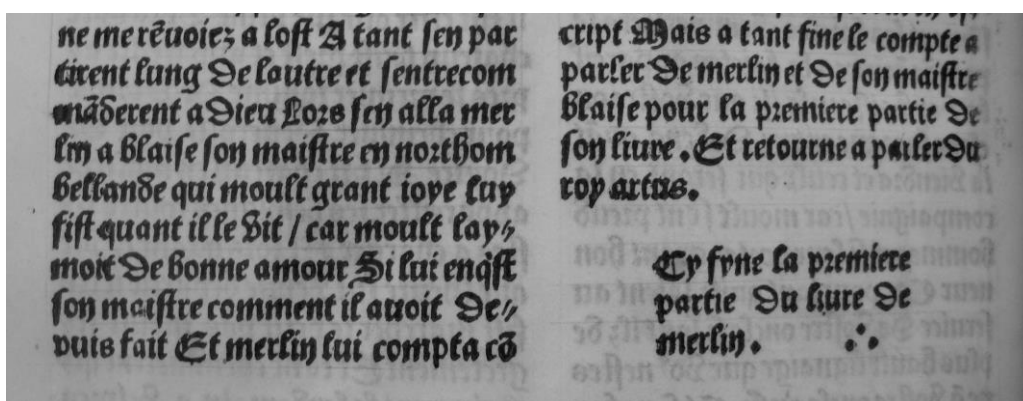 ne me rẽuoiez a lost A tant sen par
tirent lung de lautre et sentrecom
mãderent a dieu Lors sen alla mer
lin a blaise son maistre en northom
bellande qui moult grant ioye luy
fist quant il le vit / car moult lay⸗
moit de bonne amour Si lui enq̃st
son maistre comment il auoit de⸗
puis fait Et merlin lui compta cõ
cript Mais a tant fine le compte a
parler de merlin et de son maistre
blaise pour la premiere partie de
son liure . Et retourne a parler du
roy artus.
Cy fyne la premiere
partie du liure de
merlin. ∴